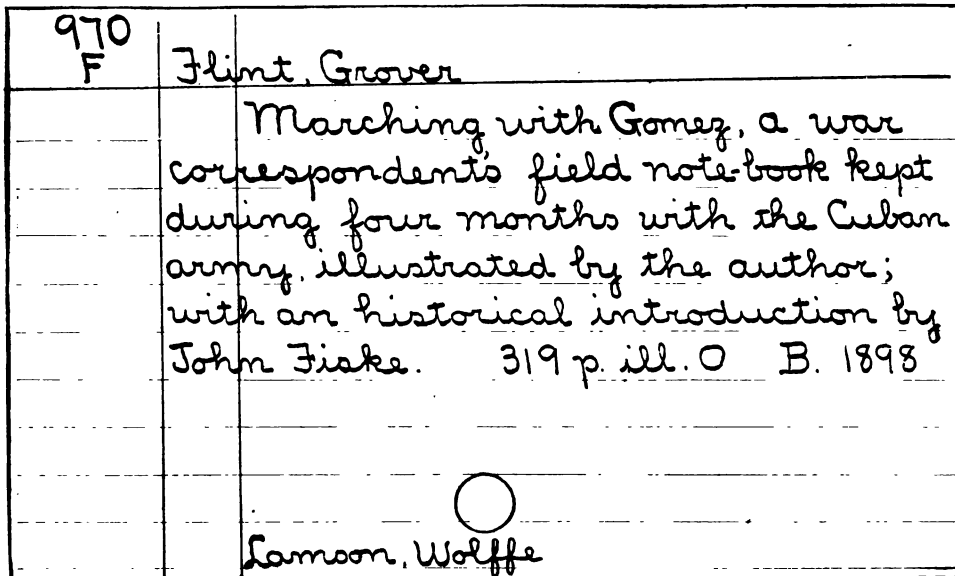 970
F Flint, Grover
Marching with Gomez, a war
correspondent's field note-book kept
during four months with the Cuban
army, illustrated by the author;
with an historical introduction by
John Fiske. 319 p. ill. O B. 1898
Lamson, Wolffe